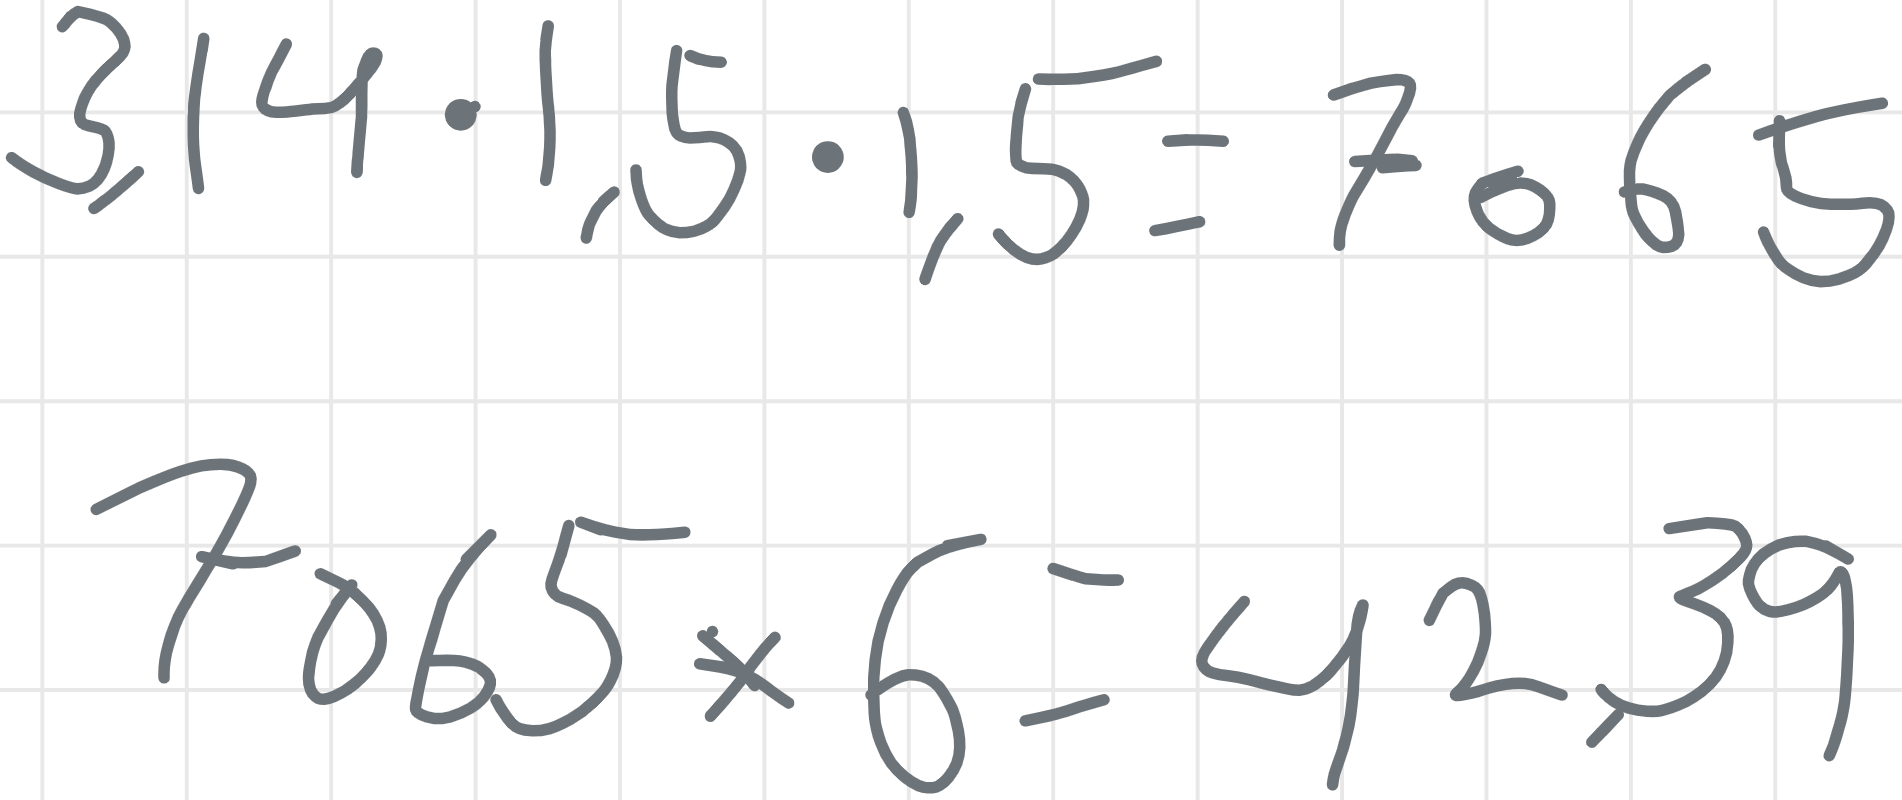 3,14·1,5·1,5=7065
7065*6=42,39